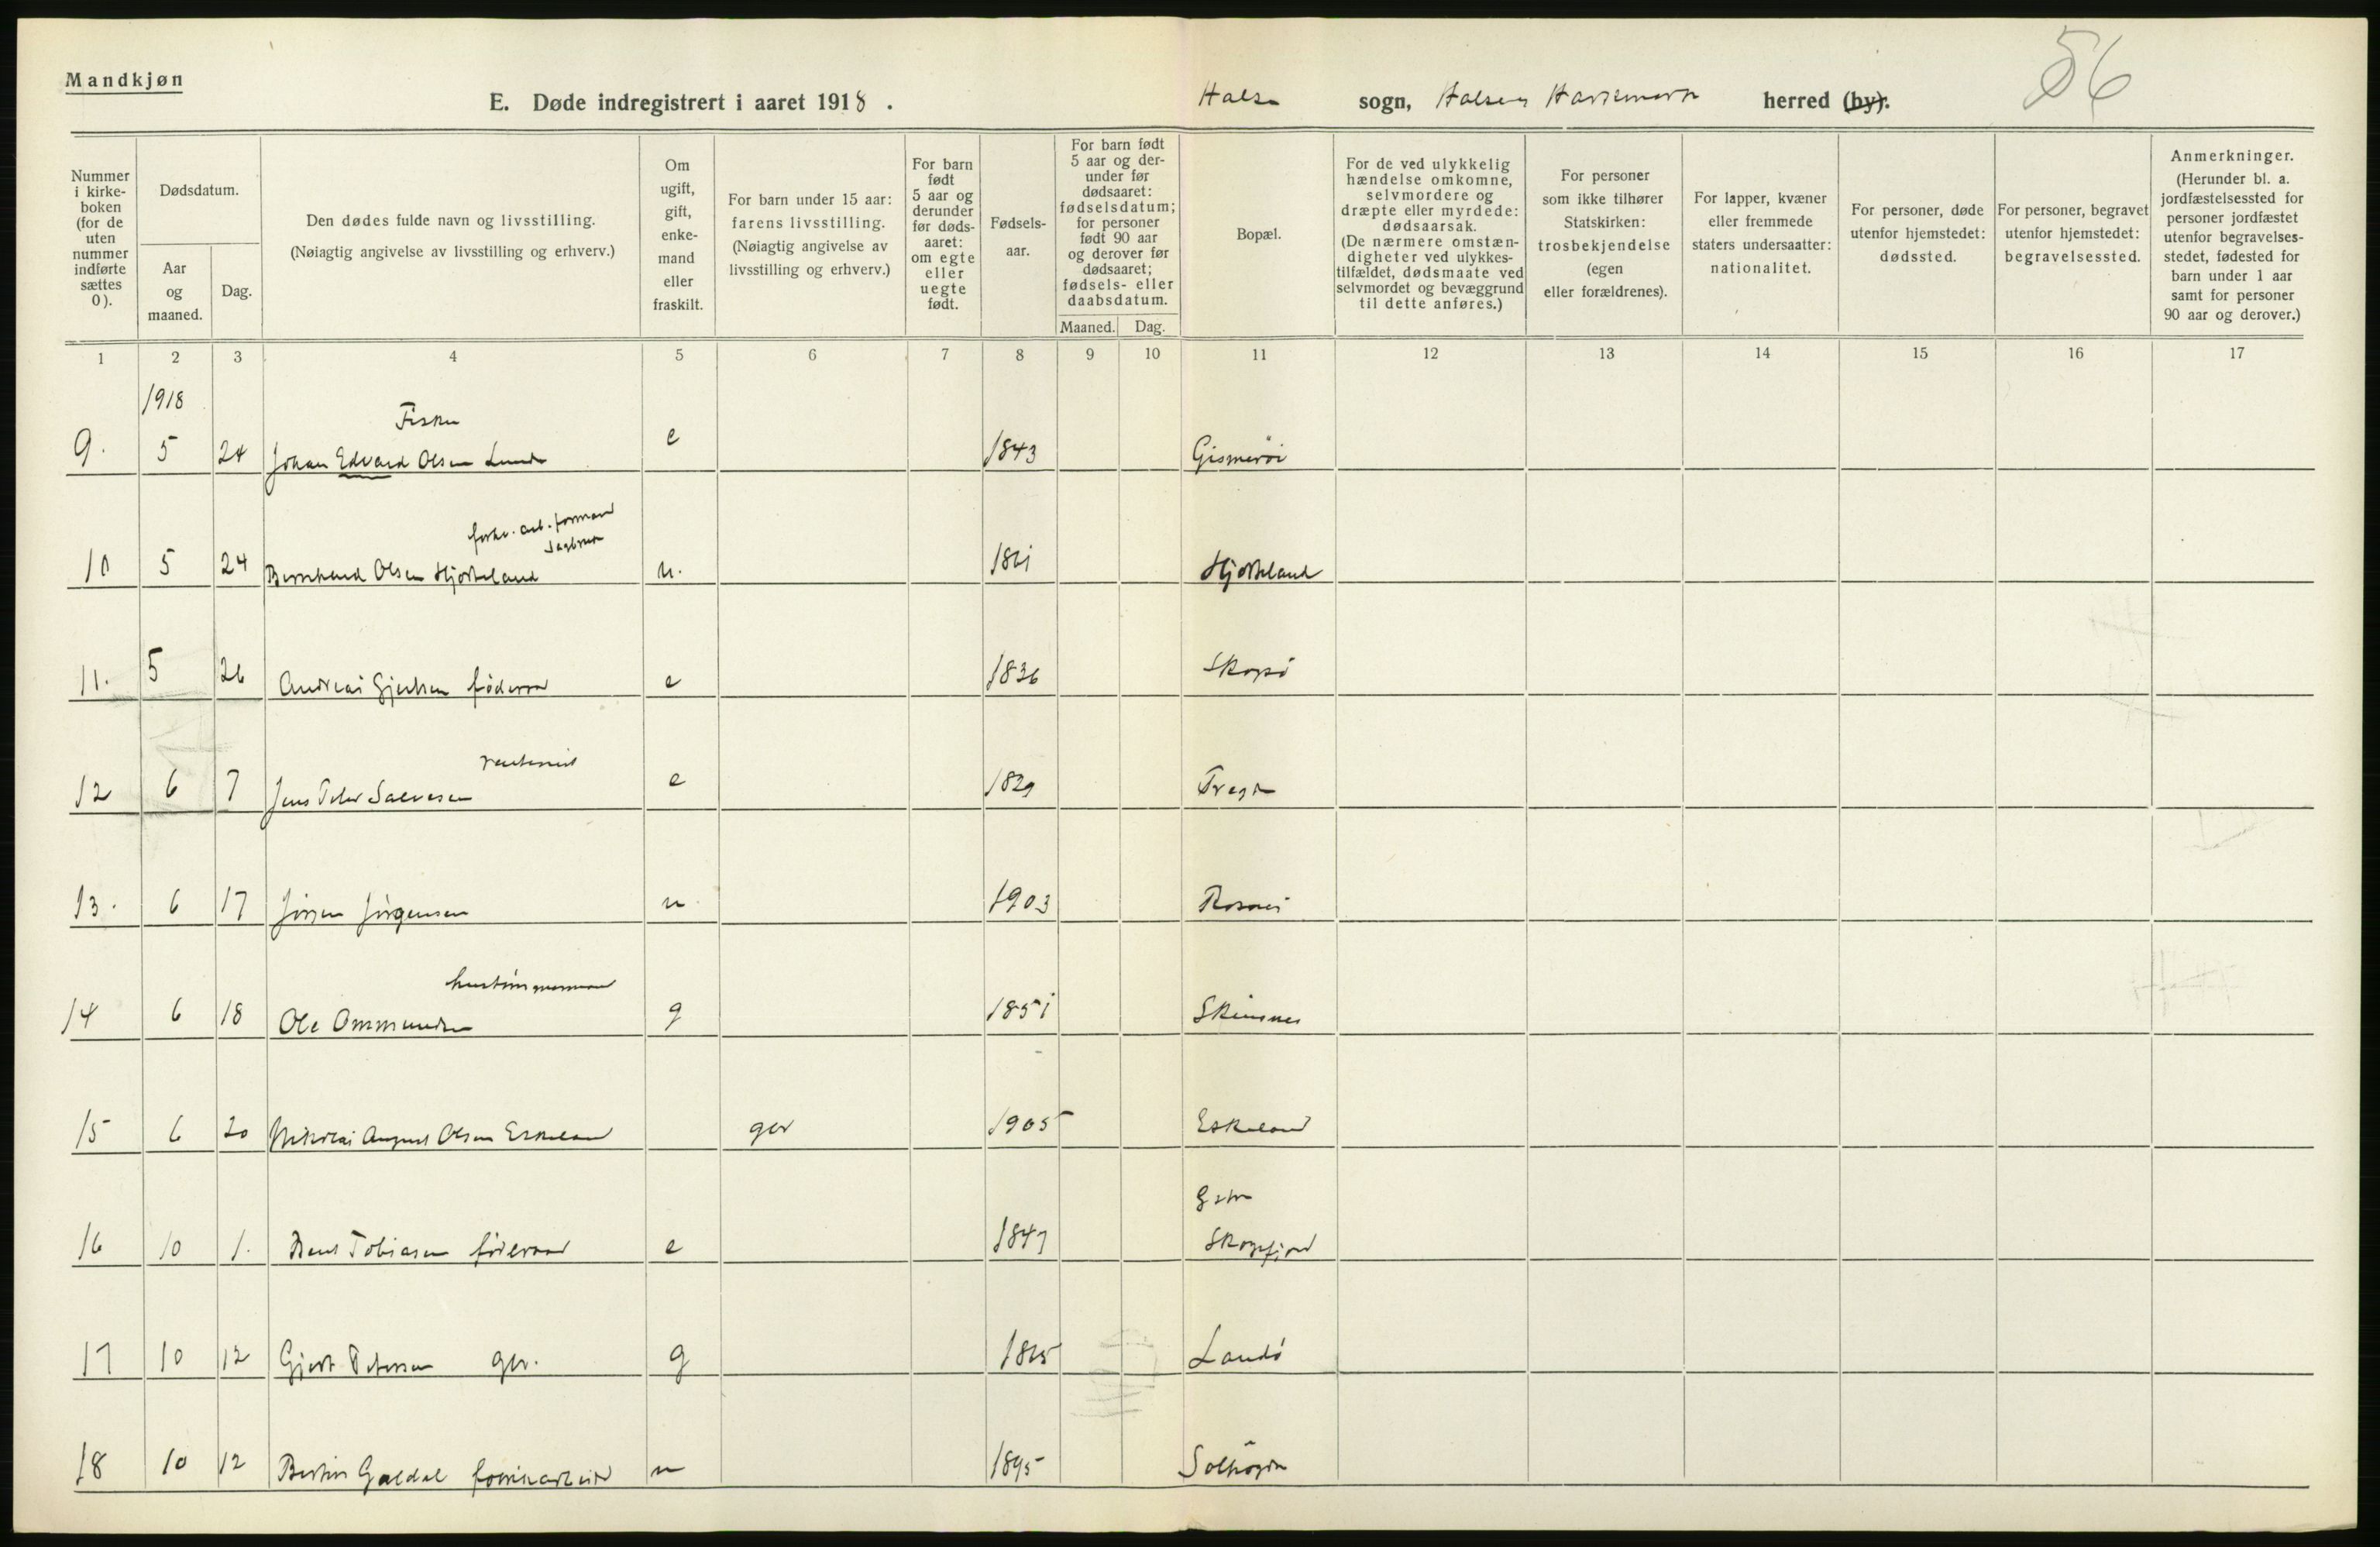 Mandkjøn
E. Døde indregistrert i aaret 1918.
Halse sogn, Halse og Harkmark herred (by).
56
Nummer i kirkeboken (for de uten nummer indførte sættes 0).
Dødsdatum.
Aar og maaned.
Dag.
Den dødes fulde navn og livsstilling.
(Nøiagtig angivelse av livsstilling og erhverv.)
Om ugift, gift, enkemand eller fraskilt.
For barn under 15 aar: farens livsstilling.
(Nøiagtig angivelse av livsstilling og erhverv.)
For barn født 5 aar og derunder før dødsaaret: om egte eller uegte født.
Fødselsaar.
For barn født 5 aar og derunder før dødsaaret: fødselsdatum; for personer født 90 aar og derover før dødsaaret; fødsels- eller daabsdatum.
Maaned. Dag.
Bopæl.
For de ved ulykkelig hændelse omkomne, selvmordere og dræpte eller myrdede: dødsaarsak.
(De nærmere omstændigheter ved ulykkestilfældet, dødsmaate ved selvmordet og bevæggrund til dette anføres.)
For personer som ikke tilhører Statskirken: trosbekjendelse (egen eller forældrenes).
For lapper, kvæner eller fremmede staters undersaatter: nationalitet.
For personer, døde utenfor hjemstedet: dødssted.
For personer, begravet utenfor hjemstedet: begravelsessted.
Anmerkninger.
(Herunder bl. a. jordfæstelsessted for personer jordfæstet utenfor begravelsesstedet, fødested for barn under 1 aar samt for personer 90 aar og derover.)
1 2 3 4 5 6 7 8 9 10 11 12 13 14 15 16 17
1918
Fisker
9. 5 24 Johan Edvard Olsen Lunde e 1843 Gismerøi
forhv. arb. formand
Sagbruk
10 5 24 Bernhard Olsen Hjorteland u. 1861 Hjorteland
11. 5 26 Andreas Gjertsen føderaad e 1836 Skogsø
rentenist
12 6 7 Jens Peter Salvesen e 1829 Tregde
13. 6 17 Jørgen Jørgensen u 1903 Rosnes
hustømmermand
14 6 18 Ole Ommundsen g 1851 Skinsnes
15 6 20 Nikolai August Olsen Eskeland gbr 1905 Eskeland
16 10 1. Bent Tobiasen føderaad e 1847 Skogsfjord
17 10 12 Gjert Petersen gbr. g 1865 Landø
18 10 12 Bertin Galdal fabrikarbeider u 1895 Solhøgda